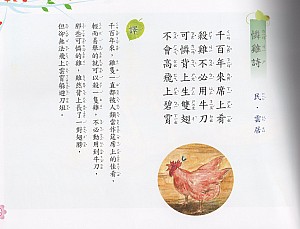 憫雞詩
民．雲居
千百年來席上肴
殺雞不必用牛刀
可憐背上生雙翅
不會高飛上碧霄
譯
千百年來，雞隻一直都被人類當作筵席上的佳肴，
輕而易舉的就可以殺一隻雞，不必動用到牛刀。
那些可憐的雞，雖然背上長了一對翅膀，
但卻無法飛上雲霄躲避刀俎。